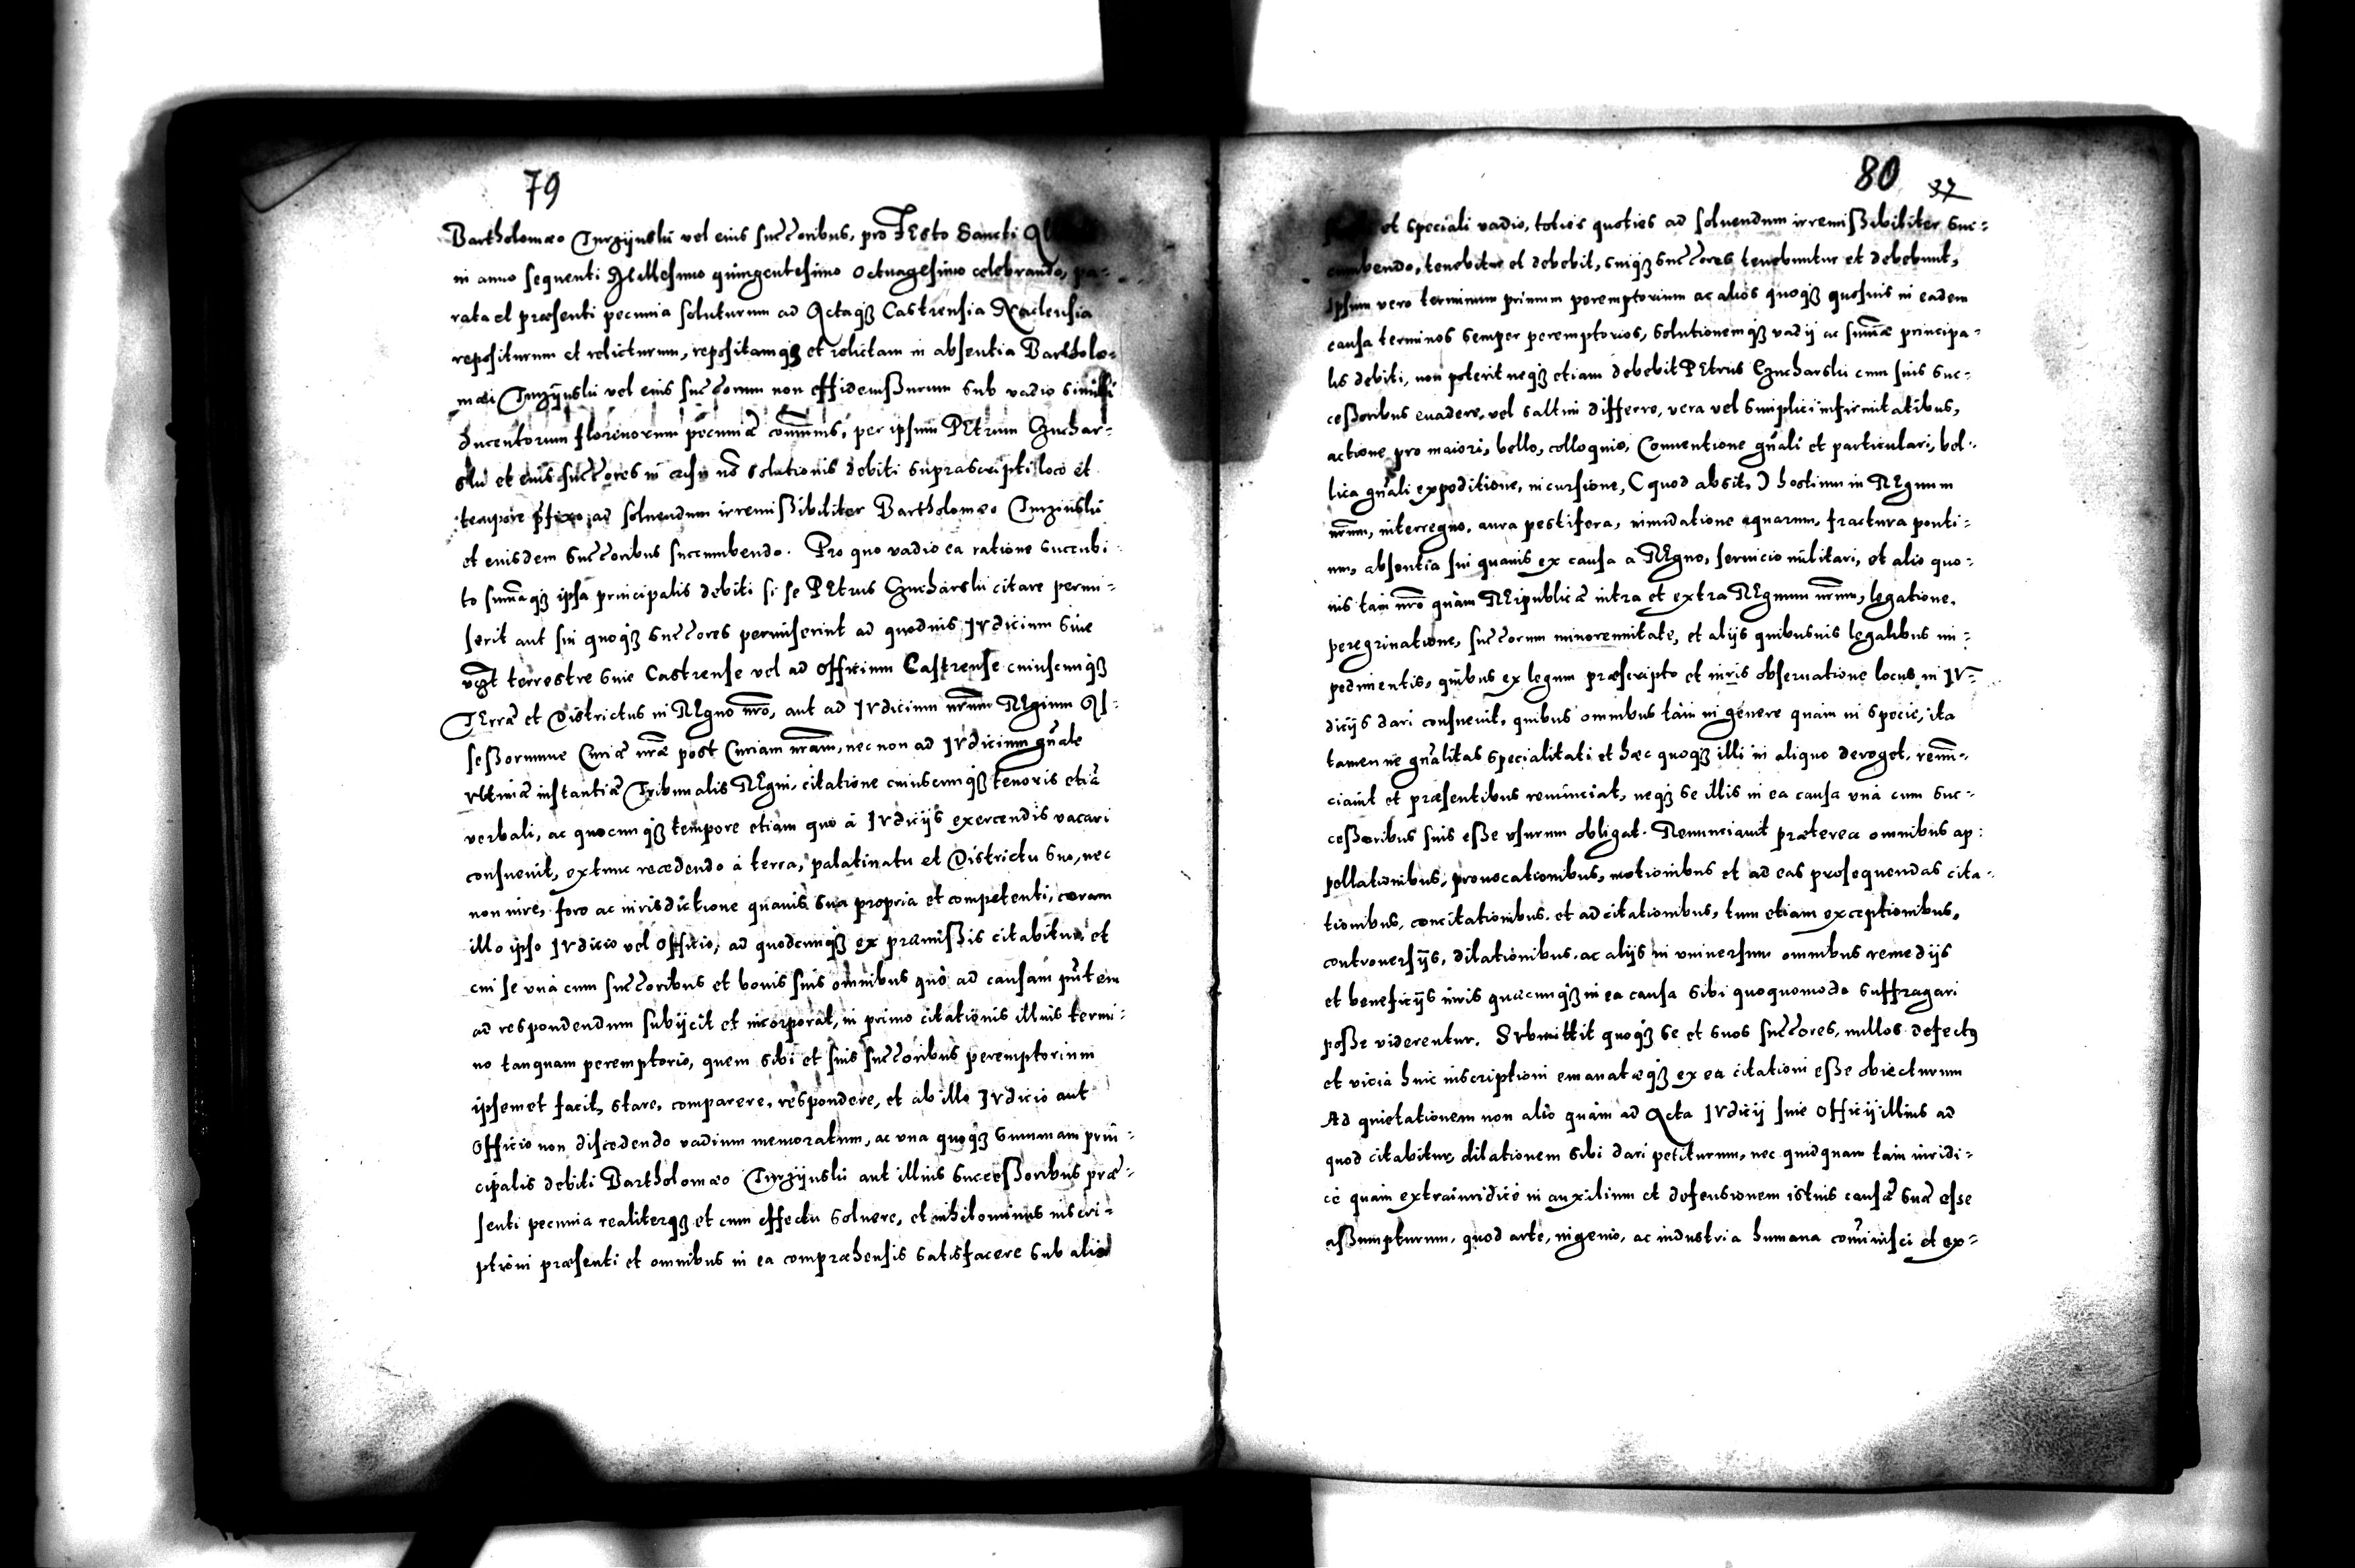 79
Bartholomæo Turzÿnslii vel eius succ̄oribus, pro FEsto Sancti
in anno sequenti Millesimo quingentesimo octuagesimo celebrando, pa-
rata et præsenti pecunia soluturum ad Actaq₃ Castrensia Naclensia
repositurum et relicturum, repositamq₃ et relictam in absentia Bartholo-
mæi Turzÿnslii vel eius succ̄orum non effidemßurum sub vadio simili
ducentorum florenorum pecuniæ com̄unis, per ipsum PEtrum Gzuchar-
slii et eius succ̄ores in casu nō solutionis debiti suprascripti loco et
tempore p̄fixo, ad soluendum irremißibiliter Bartholomæo Turzinslii
et eiusdem succ̄oribus succumbendo. Pro quo vadio ea ratione succubi-
to sum̄aq₃ ipsa principalis debiti si se PEtrus Gzucharslii citare permi-
serit aut sui quoq₃ succ̄ores permiserint ad quoduis IVdicium siue
vḡt terrestre siue Castrense vel ad officium Castrense cuiuscunq₃
TErræ et Districtus in REgno nr̄o, aut ad IVdicium nr̄um REgium AS-
seßorumue Curiæ nr̄æ post Curiam nr̄am, nec non ad IVdicium gn̄ale
vltimæ instantiæ Tribunalis REgni, citatione cuiuscunq₃ tenoris etiā
verbali, ac quocunq₃ tempore etiam quo à IVdicijs exercendis vacari
consueuit, extunc recedendo à terra, palatinatu et Districtu suo, nec
non iure, foro ac iurisdictione quauis sua propria et competenti, coram
illo ipso IVdicio vel officio, ad quodcunq₃ ex præmißis citabitur, et
cui se vnà cum succ̄oribus et bonis suis omnibus quò ad causam pn̄tem
ad respondendum subijcit et incorporat, in primo citationis illius termi-
no tanquam peremptorio, quem sibi et suis succ̄oribus peremptorium
ipsemet facit, stare, comparere, respondere, et ab illo IVdicio aut
officio non discedendo vadium memoratum, ac vna quoq₃ summam prin-
cipalis debiti Bartholomæo Turzÿnslii aut illius succeßoribus præ-
senti pecunia realiterq₃ et cum effectu soluere, et nihilominus inscri-
ptioni præsenti et omnibus in ea compræhensis satisfacere sub alio
80 37
et speciali vadio, toties quoties ad soluendum irremißibiliter suc-
cumbendo, tenebitur et debebit, suiq₃ succ̄ores tenebuntur et debebunt,
Ipsum vero terminum primum peremptorium ac alios quoq₃ quosuis in eadem
causa terminos semper peremptorios, solutionemq₃ vadij ac sum̄æ principa-
lis debiti, non poterit neq₃ etiam debebit PEtrus Gzucharslii cum suis suc-
ceßoribus euadere, vel saltim differre, vera vel simplici infirmitatibus,
actione pro maiori, bello, colloquio, Conuentione gn̄ali et particulari, bel-
lica gn̄ali expeditione, incursione, (quod absit,) hostium in REgnum
nr̄um, interregno, aura pestifera, inundatione aquarum, fractura ponti-
um, absentia sui quauis ex causa a REgno, seruicio militari, et alio quo-
uis tam nr̄o quàm REipublicæ intra et extra REgnum nr̄um, legatione,
peregrinatione, succ̄orum minorennitate, et alijs quibusuis legalibus im-
pedimentis, quibus ex legum præscripto et iuris obseruatione locus in IV-
dicijs dari consueuit, quibus omnibus tàm in genere quàm in specie, ita
tamen ne gn̄alitas specialitati et hæc quoq₃ illi in aliquo deroget, renn̄-
ciauit et præsentibus renunciat, neq₃ se illis in ea causa vnà cum suc-
ceßoribus suis eße vsurum obligat. Renunciauit præterea omnibus ap-
pellationibus, prouocationibus, motionibus et ad eas prosequendas cita-
tionibus, concitationibus, et adcitationibus, tum etiam exceptionibus,
controuersijs, dilationibus, ac alijs in vniuersum omnibus remedijs
et beneficijs iuris quæcunq₃ in ea causa sibi quoquomodo suffragari
poße viderentur. SVbmittit quoq₃ se et suos succ̄ores, nullos defectꝰ
et vicia huic inscriptioni emanatæq₃ ex ea citationi eße obiecturum
Ad quietationem non aliò quàm ad Acta IVdicij siue officij illius ad
quod citabitur, dilationem sibi dari petiturum, nec quidquam tàm iuridi-
cè quàm extraiuridicè in auxilium et defensionem istius causæ suæ esse
aßumpturum, quod arte, ingenio, ac industria humana com̄inisci et ex-